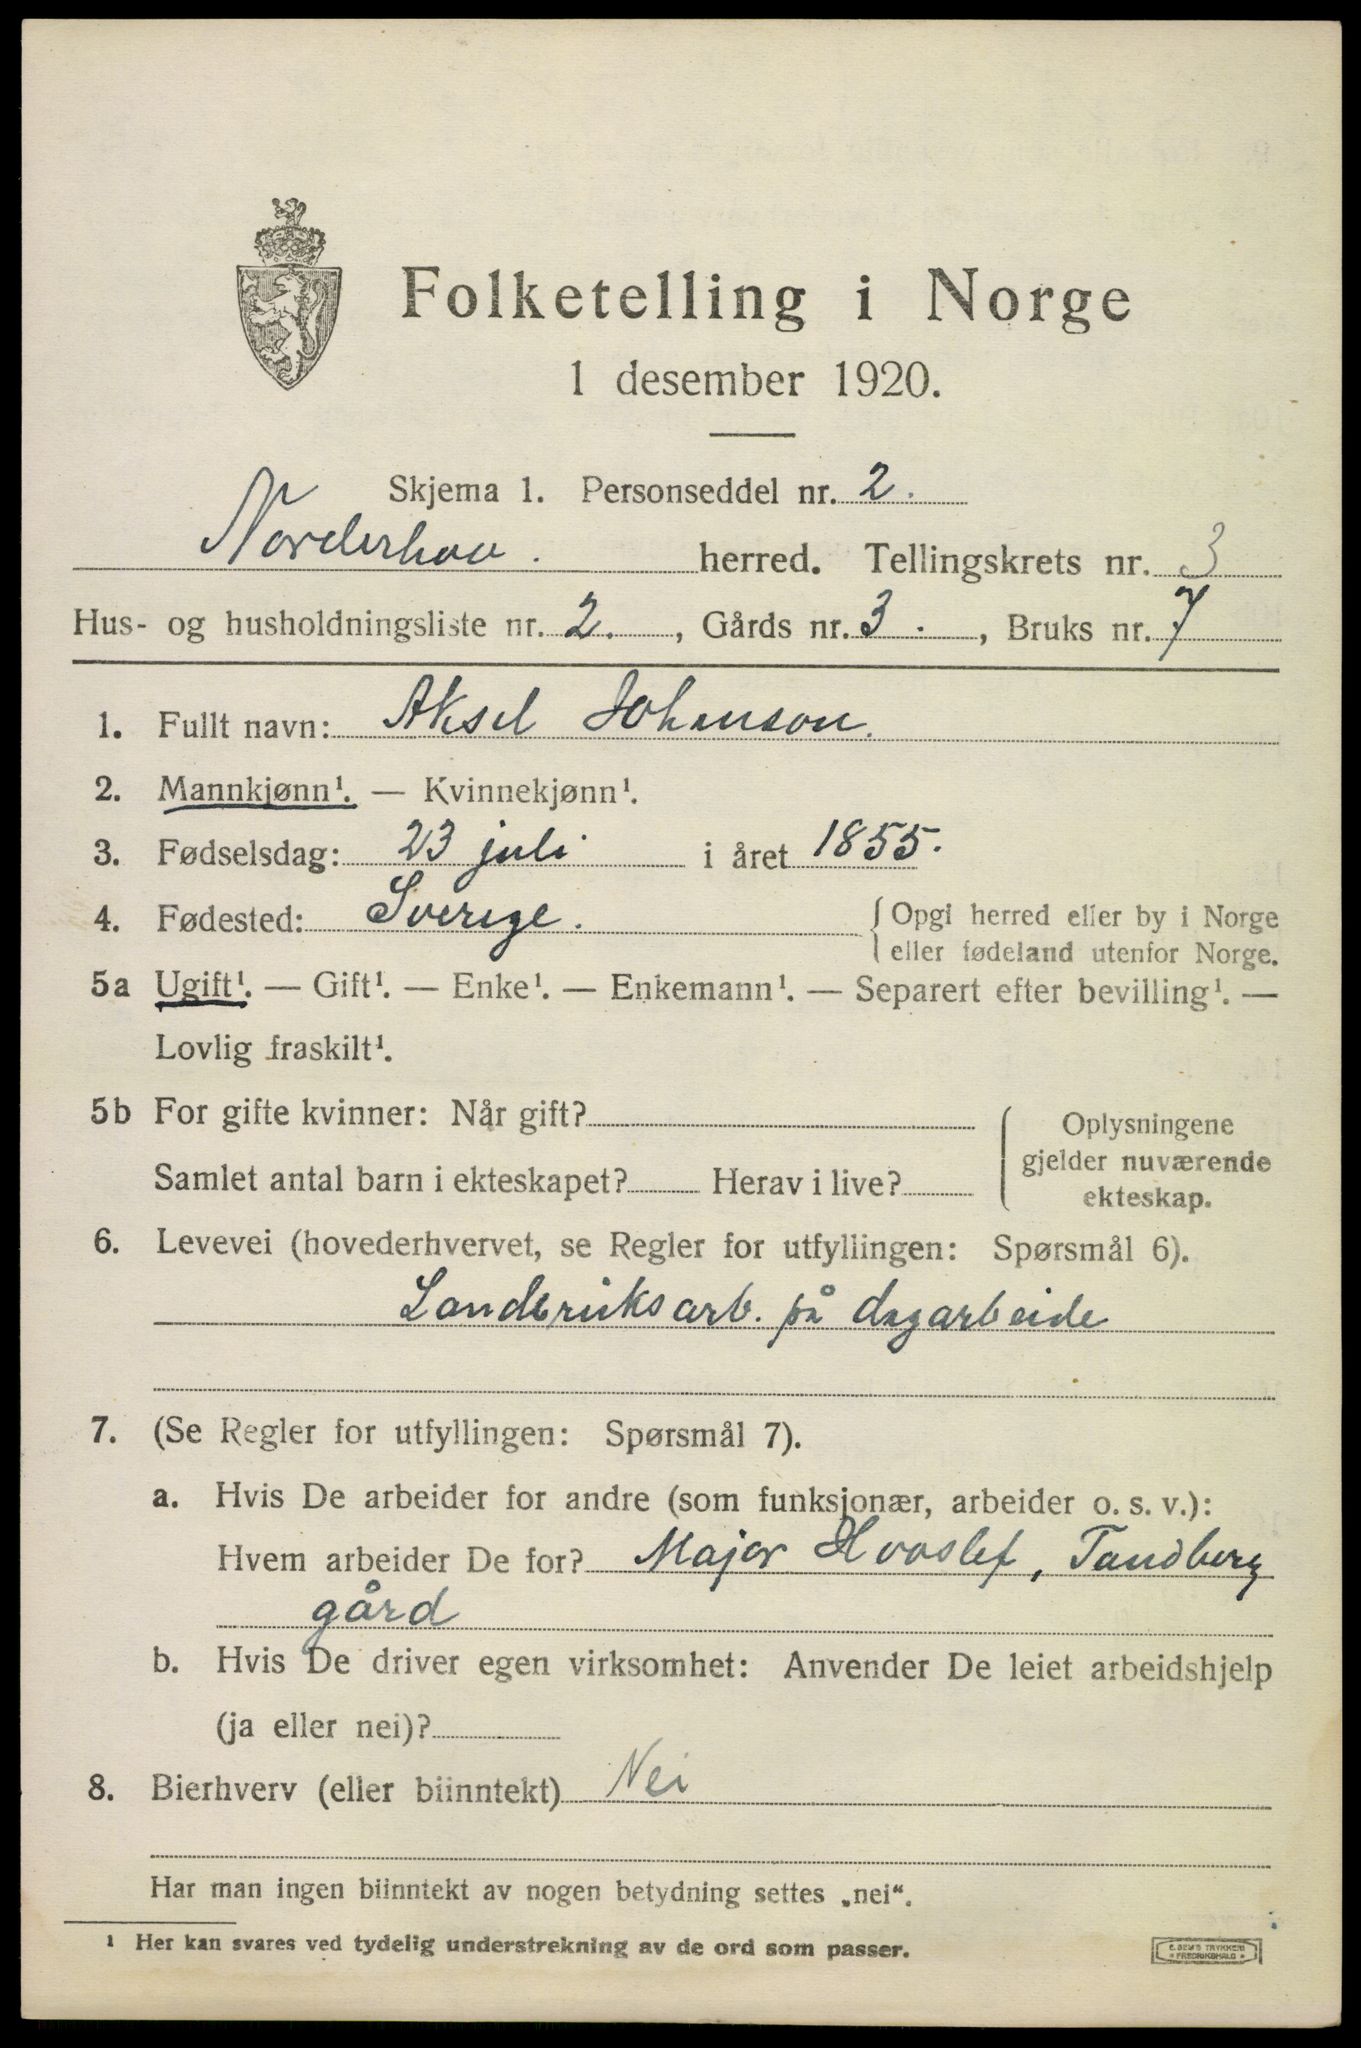 Folketelling i Norge
1 desember 1920.
Skjema 1. Personseddel nr. 2.
Norderhov. herred. Tellingskrets nr. 3
Hus- og husholdningsliste nr. 2., Gårds nr. 3., Bruks nr. 7
1. Fullt navn: Aksel Johanson.
2. Mannkjønn¹. — Kvinnekjønn¹.
3. Fødselsdag: 23 juli i året 1855.
4. Fødested: Sverige. { Opgi herred eller by i Norge
eller fødeland utenfor Norge.
5a Ugift¹. — Gift¹. — Enke¹. — Enkemann¹. — Separert efter bevilling¹. —
Lovlig fraskilt¹.
5b For gifte kvinner: Når gift? { Oplysningene
gjelder nuværende
Samlet antal barn i ekteskapet? Herav i live?
ekteskap.
6. Levevei (hovederhvervet, se Regler for utfyllingen: Spørsmål 6).
Landbruksarb. på dagarbeide
7. (Se Regler for utfyllingen: Spørsmål 7).
a. Hvis De arbeider for andre (som funksjonær, arbeider o. s. v.):
Hvem arbeider De for? Major Hvoslef, Tandberg
gård
b. Hvis De driver egen virksomhet: Anvender De leiet arbeidshjelp
(ja eller nei)?
8. Bierhverv (eller biinntekt) Nei
Har man ingen biinntekt av nogen betydning settes „nei“.
¹ Her kan svares ved tydelig understrekning av de ord som passer.
E. SEM'S TRYKKERI
FREDRIKSHALD